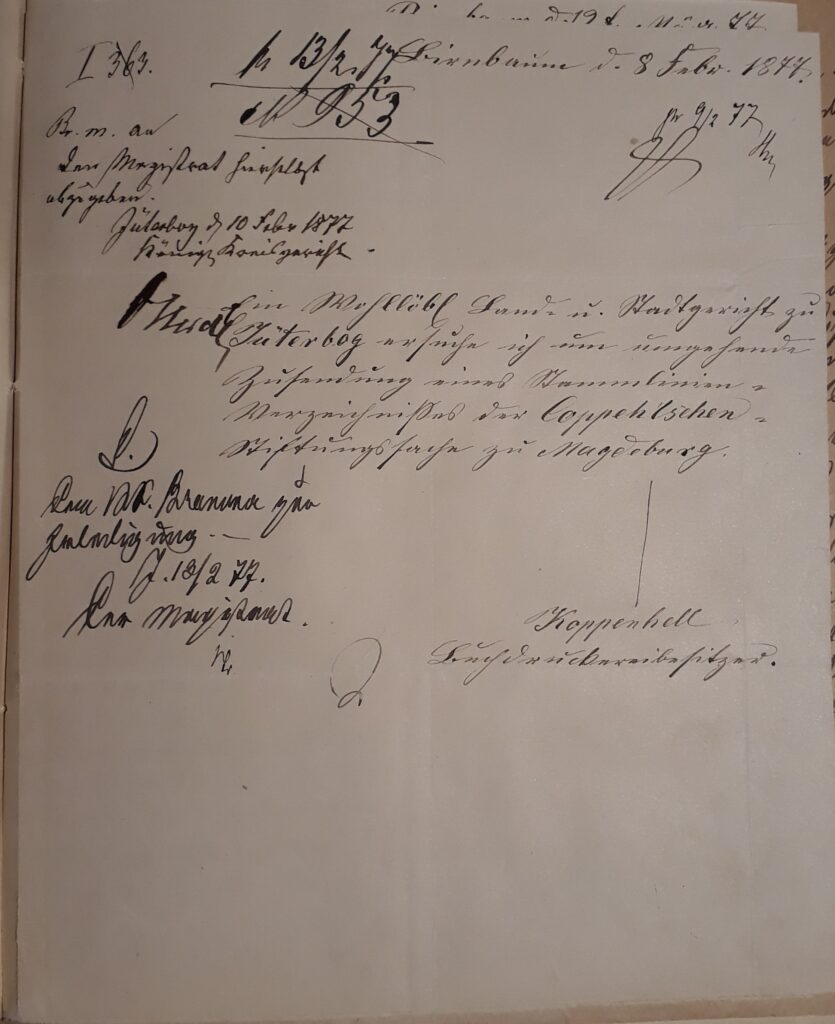 d. 19 t. März 77
I 363.
pr 13/2 77
Birnbaum d. 8 Febr. 1877.
№ 953
pr 9/2 77
Br. m. an
den Magistrat hierselbst
abzugeben.
Jüterbog d 10 Febr 1877
Königl Kreisgericht.
Ein Wohllöbl Land- u. Stadtgericht zu
Jüterbog ersuche ich um umgehende
Zusendung eines Stammlinien-
Verzeichnißes der Coppehlschen-
Stiftungssache zu Magdeburg.
Dem zur
Erledigung.
J. 18/2 77.
Der Magistrat.
Koppenhell
Buchdruckereibesitzer.